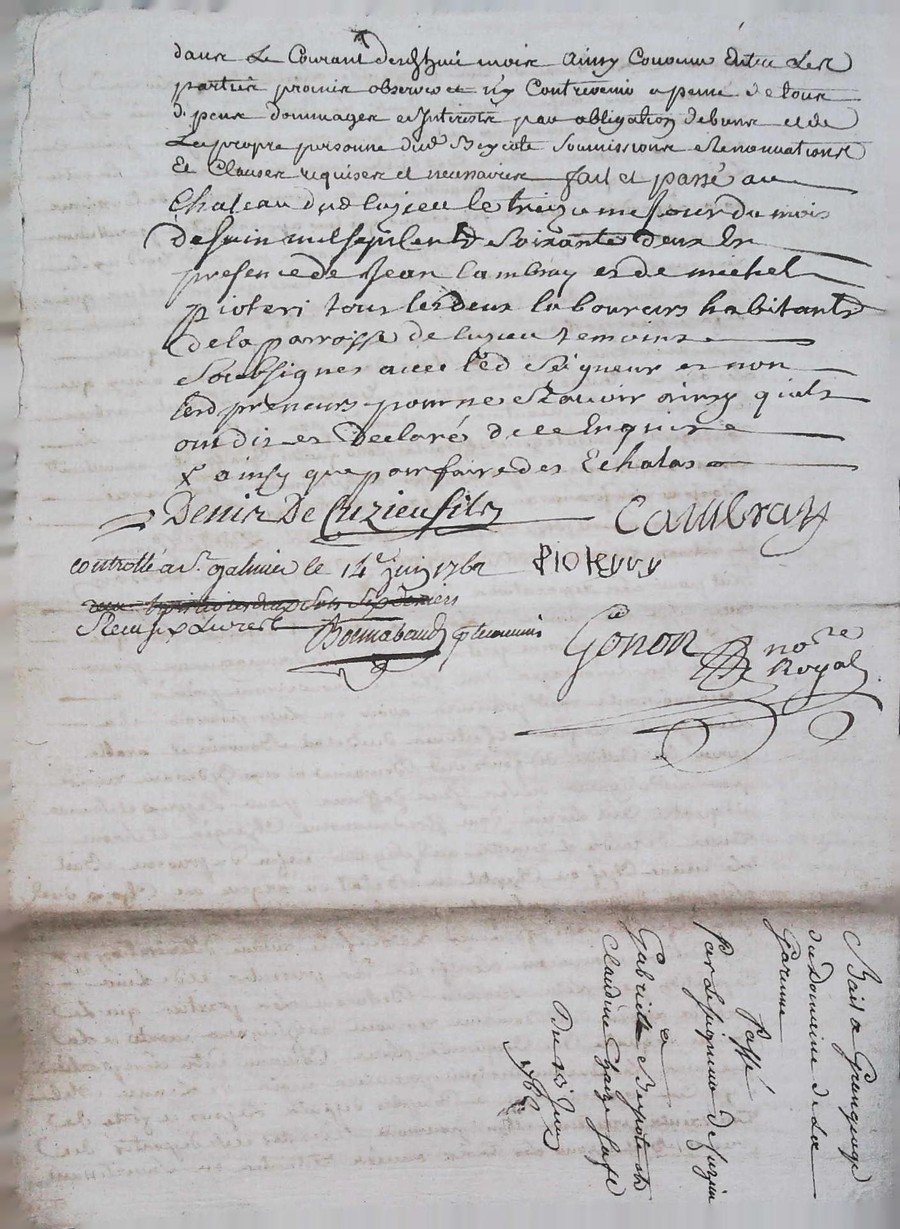 dans Le Courant desd huit mois Ainsy Convenu Entre Les
parties promis observer et n'y Contrevenir a peine de tous
depens dommages et Interests par obligation de biens et de
La propre personne dud Beycote Soumissions Renonciations
Et Clauses requises et necessaires fait et passé au
Chateau dud luzieu le treizieme Jour du mois
de Juin mil sept Cent Soixante deux En
presence de Jean Cambray et de michel
pioteri tous les deux laboureurs habitants
de la parroisse de luzieu temoins
Soubsignes avec led Seigneur et non
lesd preneurs pour ne Scavoir ainsy quils
ont dit et Declaré de ce Enquis
X ainsy que pour faire des Echalas
Denis De Luzieu fils Cambray
controllé a St galmier le 14e juin 1762 Pioteyry
Recu six Livres
Gonon nore
Royal
Bail a Grangeage
du Domeine de La
Garenne
Passé
Par Le seigneur de Luzieu
a
Gabriel Beycote et
Claudine Chaize Sa fe
Du 13 Juin
1762